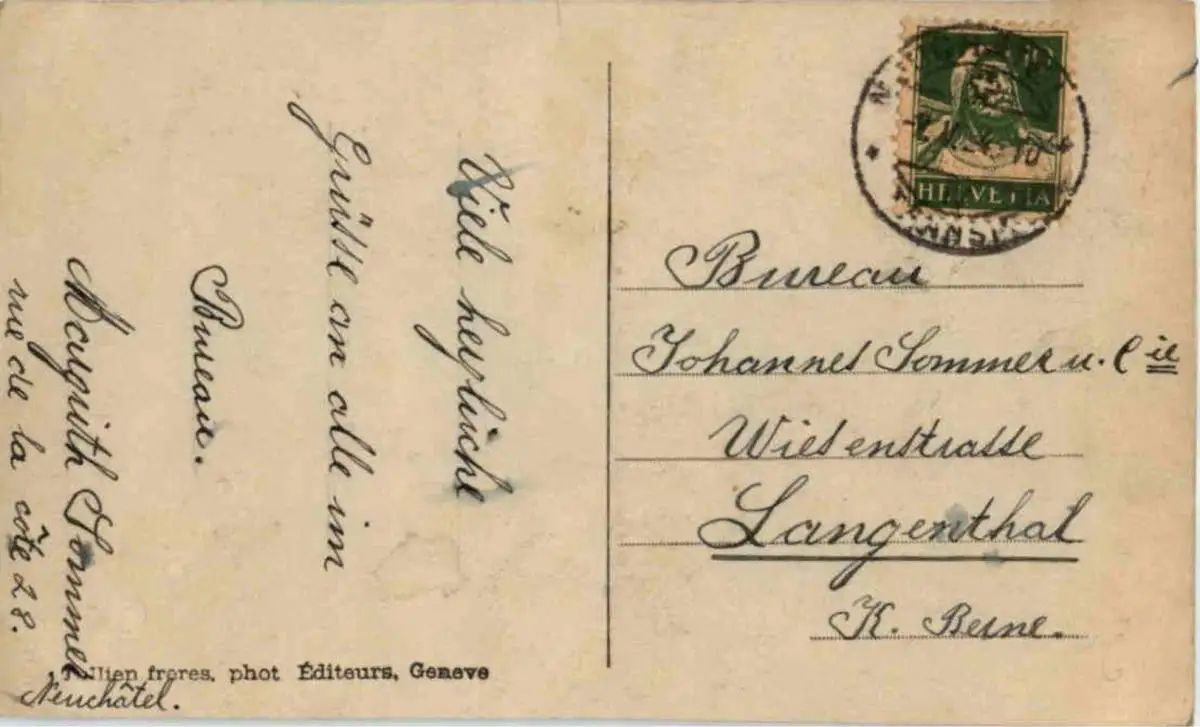 Viele herzliche
Grüsse an alle im
Bureau.
Margrith Sommer
rue de la côte 28.
Neuchâtel.
Jullien freres, phot Éditeurs, Geneve
HELVETIA
Bureau
Johannes Sommer u. Cie
Wiesenstrasse
Langenthal
K. Berne.